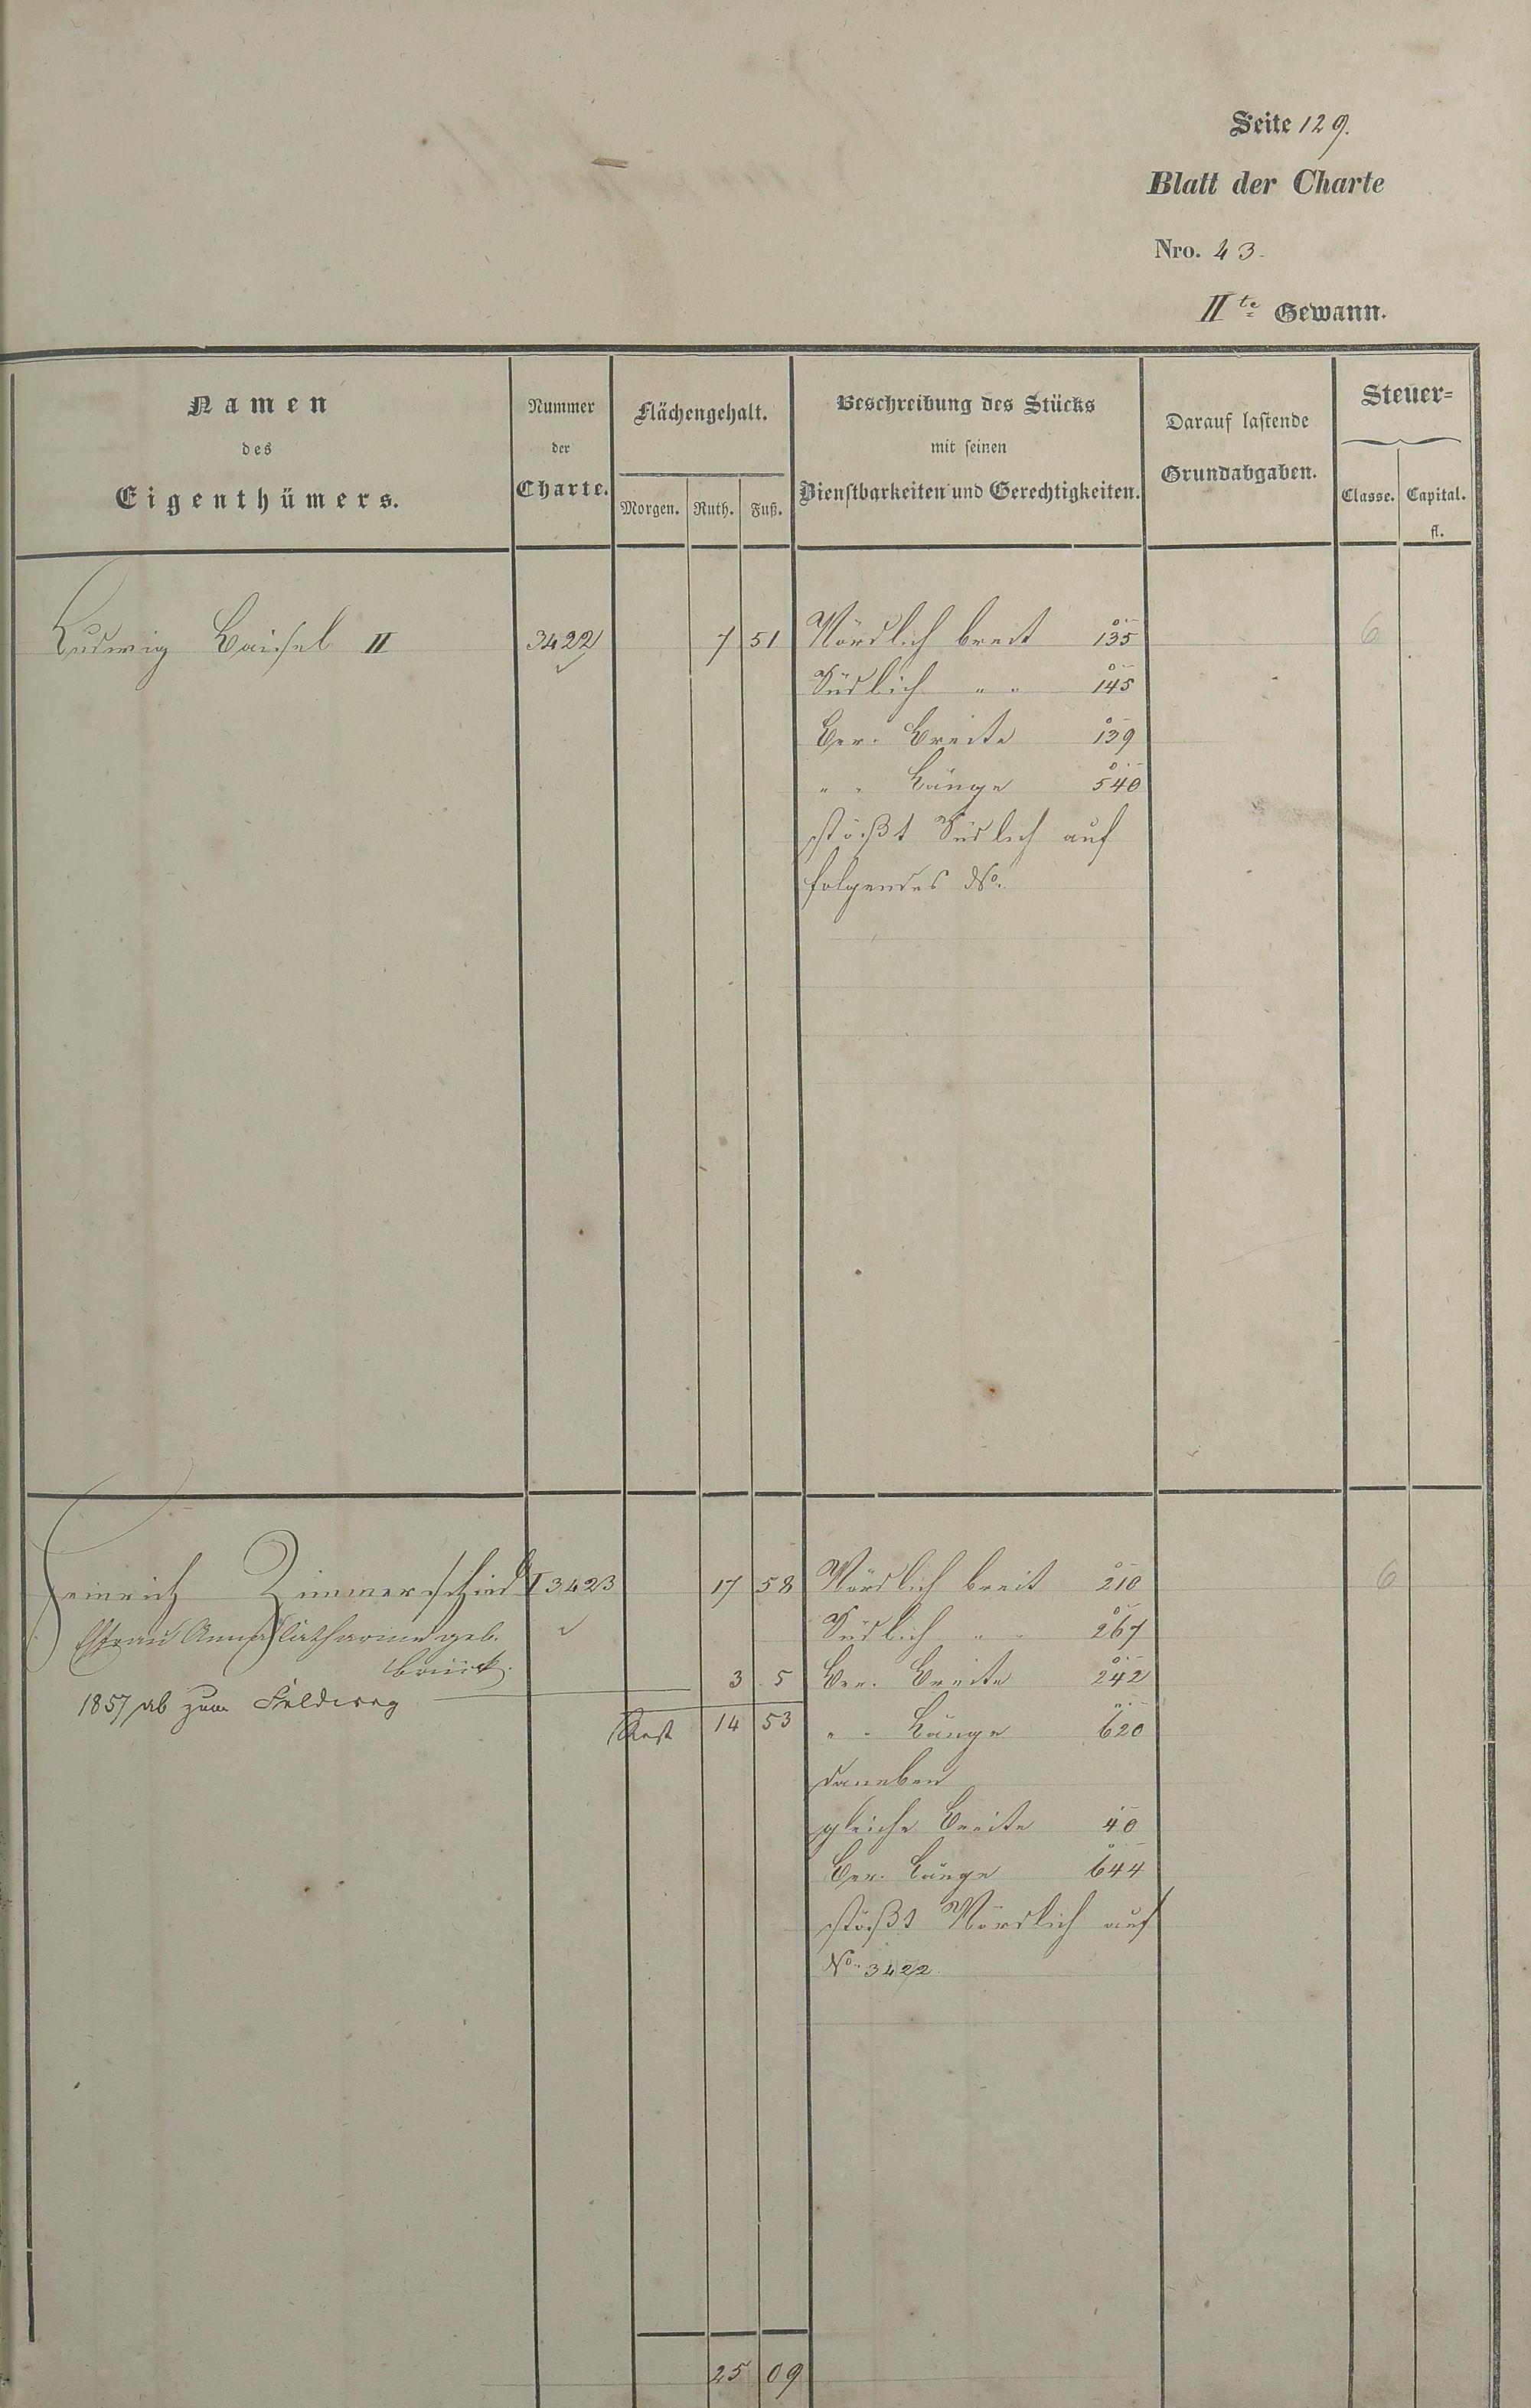 Seite 129.
Blatt der Charte
Nro. 43.
II te Gewann.
Namen
des
Eigenthümers.
Nummer
der
Charte.
Flächengehalt.
Morgen. Ruth. Fuß.
Beschreibung des Stücks
mit seinen
Dienstbarkeiten und Gerechtigkeiten.
Darauf lastende
Grundabgaben.
Steuer=
Classe. Capital.
fl.
Ludwig Baisel II 3422 7 51 Nördlich breit 135 6
Südlich " " 145
Ber. Breite 139
" " Länge 540
stößt Südlich auf
folgendes No.
Heinrich Zimmerschied I 3423 17 58 Nördlich breit 210 6
Ehefrau Anna Catharine geb. Südlich " " 267
3 5 Ber. Breite 242
1857 ab zum Feldweg
Rest 14 53 " " Länge 620
daneben
gleiche Breite 40
Ber. Länge 644
stößt Nördlich auf
No. 3422
25 09